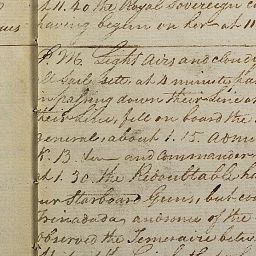 at 11.40 the Royal Sovereign c
having begun on her at 11
P.M. Light Airs and cloudy
all sail set, at 4 minutes
in passing down their Line
their Line, fell on board the
general, about 1.15. Adm
K.B. and Commander
at 1.30 the Redoubtable ha
our Starboard Guns, but co
Trinadada, and some of the
observed the Temeraire betw